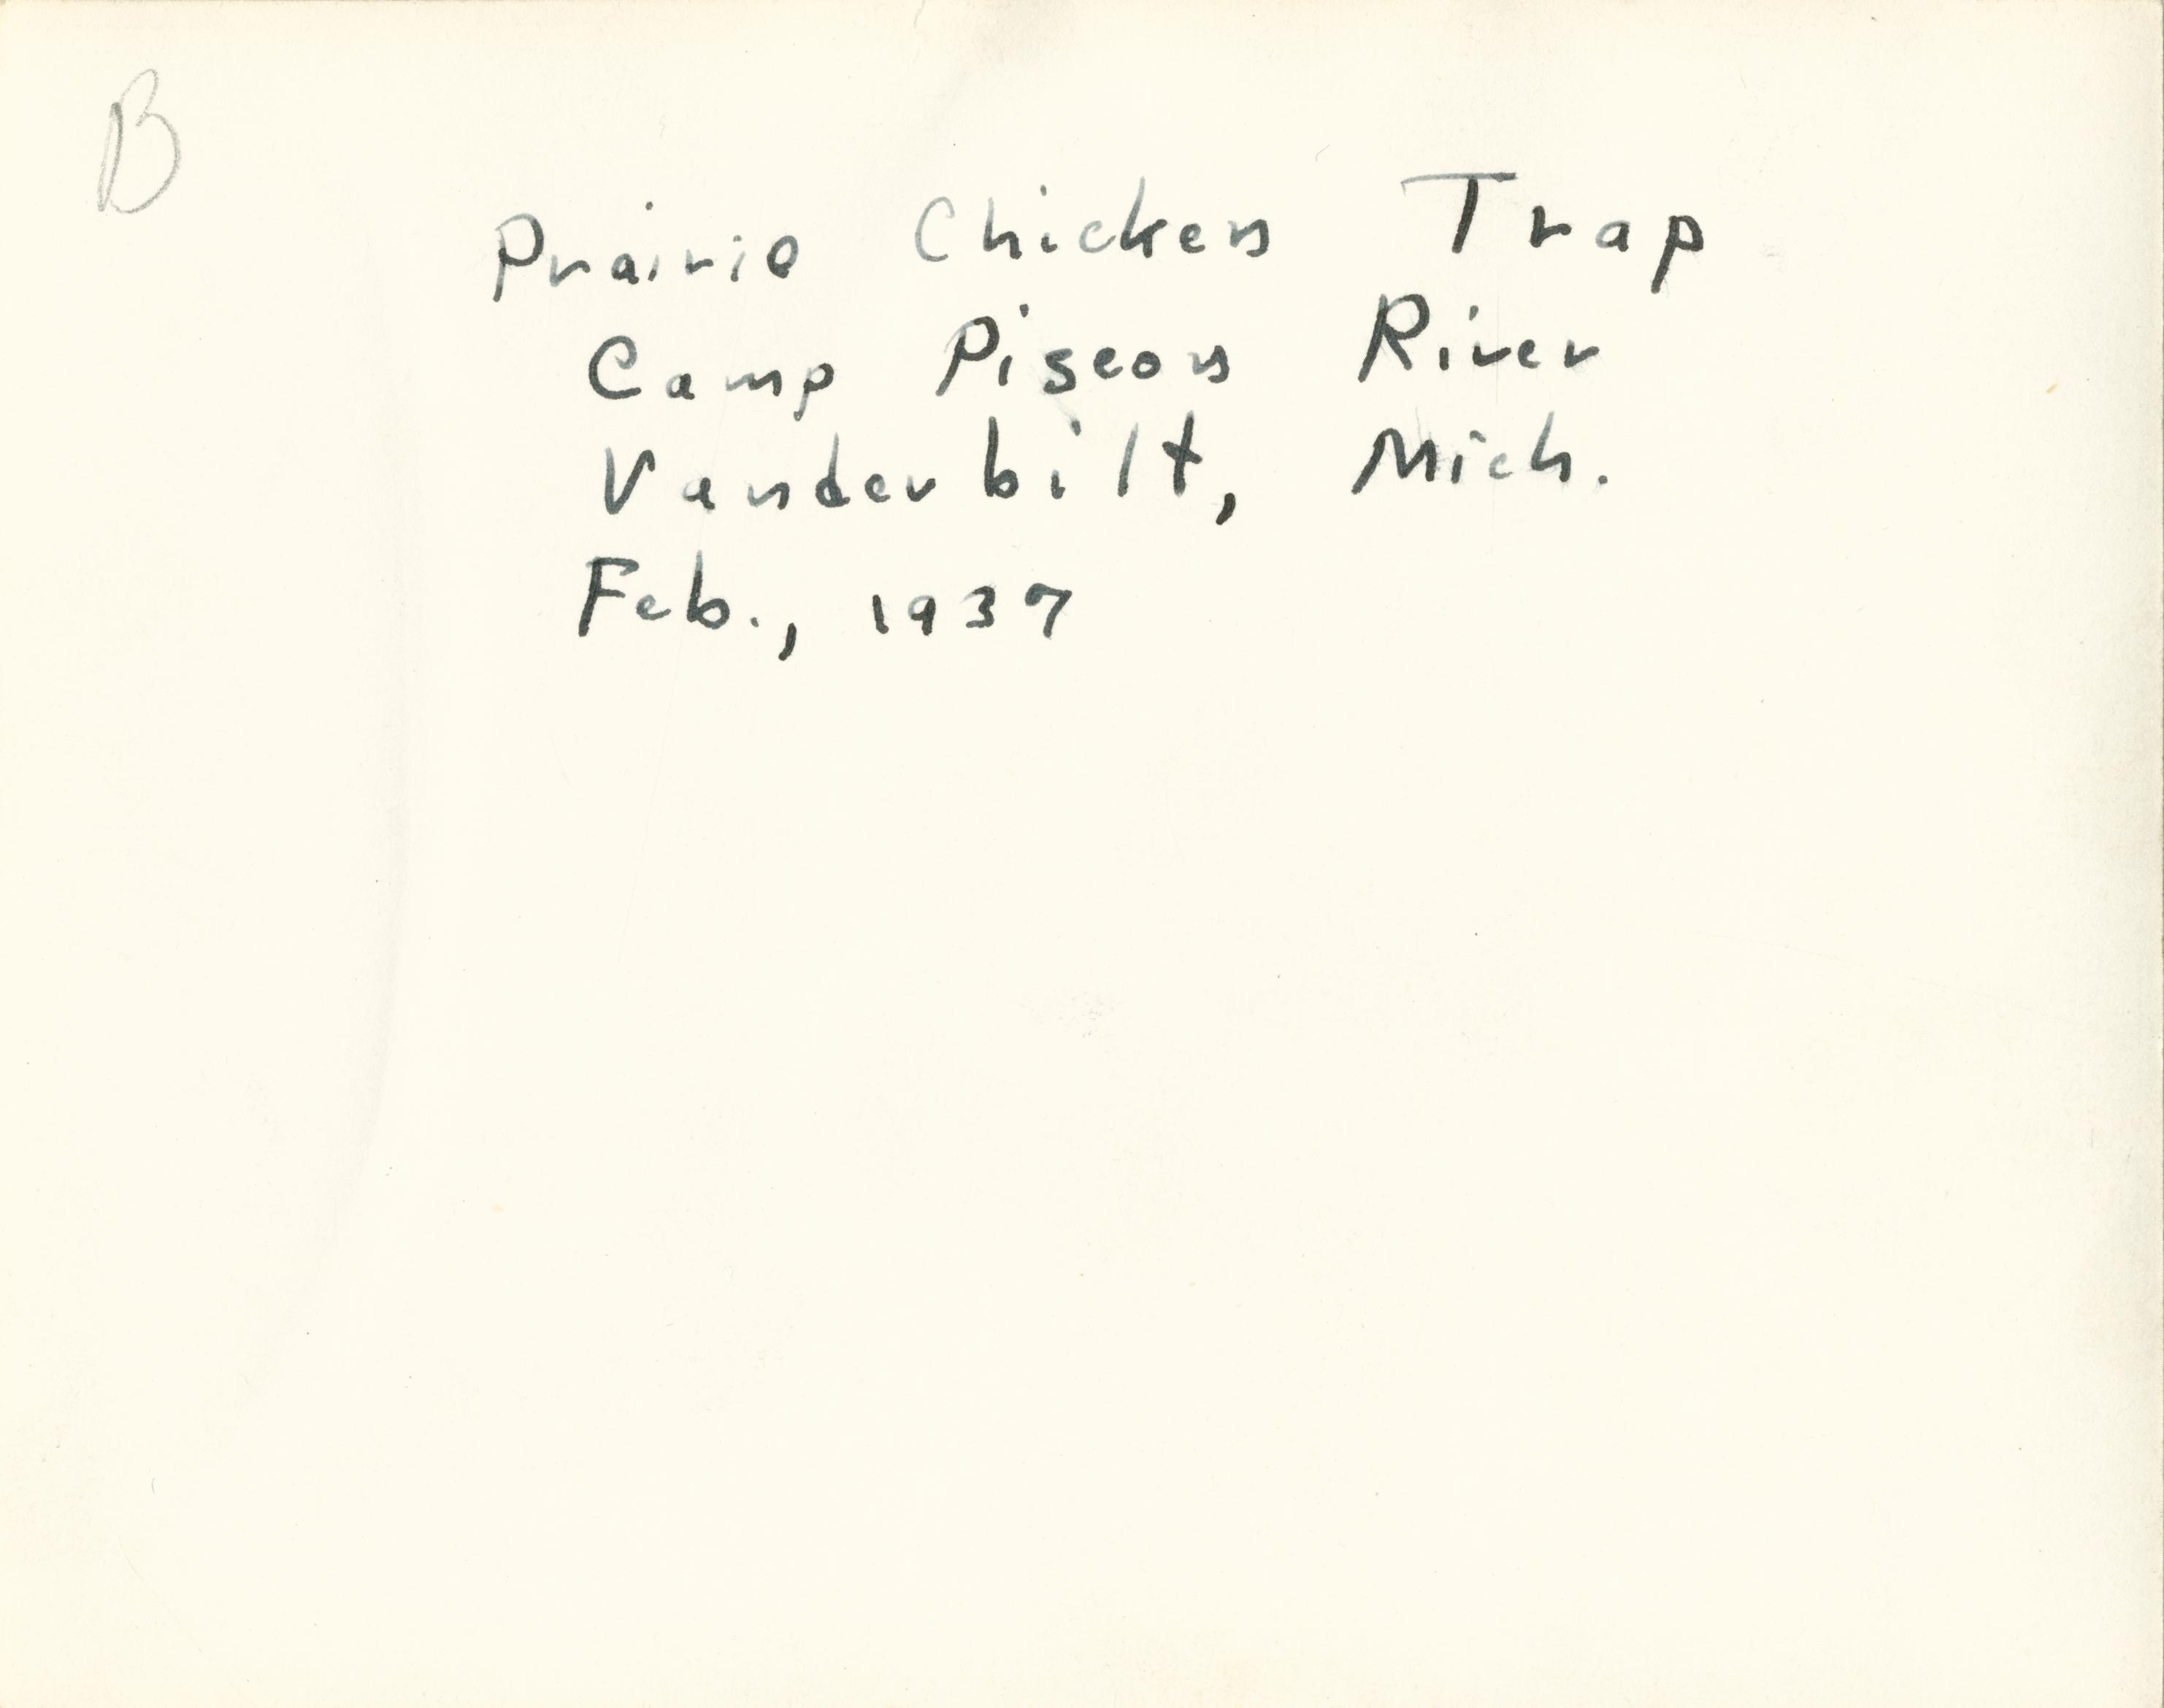 B
Prairie Chicken Trap
Camp Pigeon River
Vanderbilt, Mich.
Feb., 1937